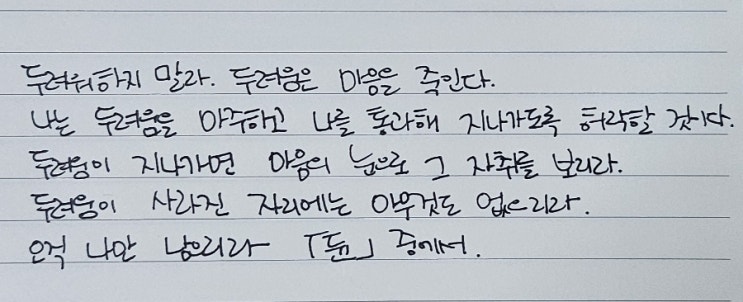 두려워하지 말라. 두려움은 마음을 죽인다.
나는 두려움을 마주하고 나를 통과해 지나가도록 허락할 것이다.
두려움이 지나가면 마음의 눈으로 그 자취를 보리라.
두려움이 사라진 자리에는 아무것도 없으리라.
오직 나만 남으리라 「듄」 중에서.